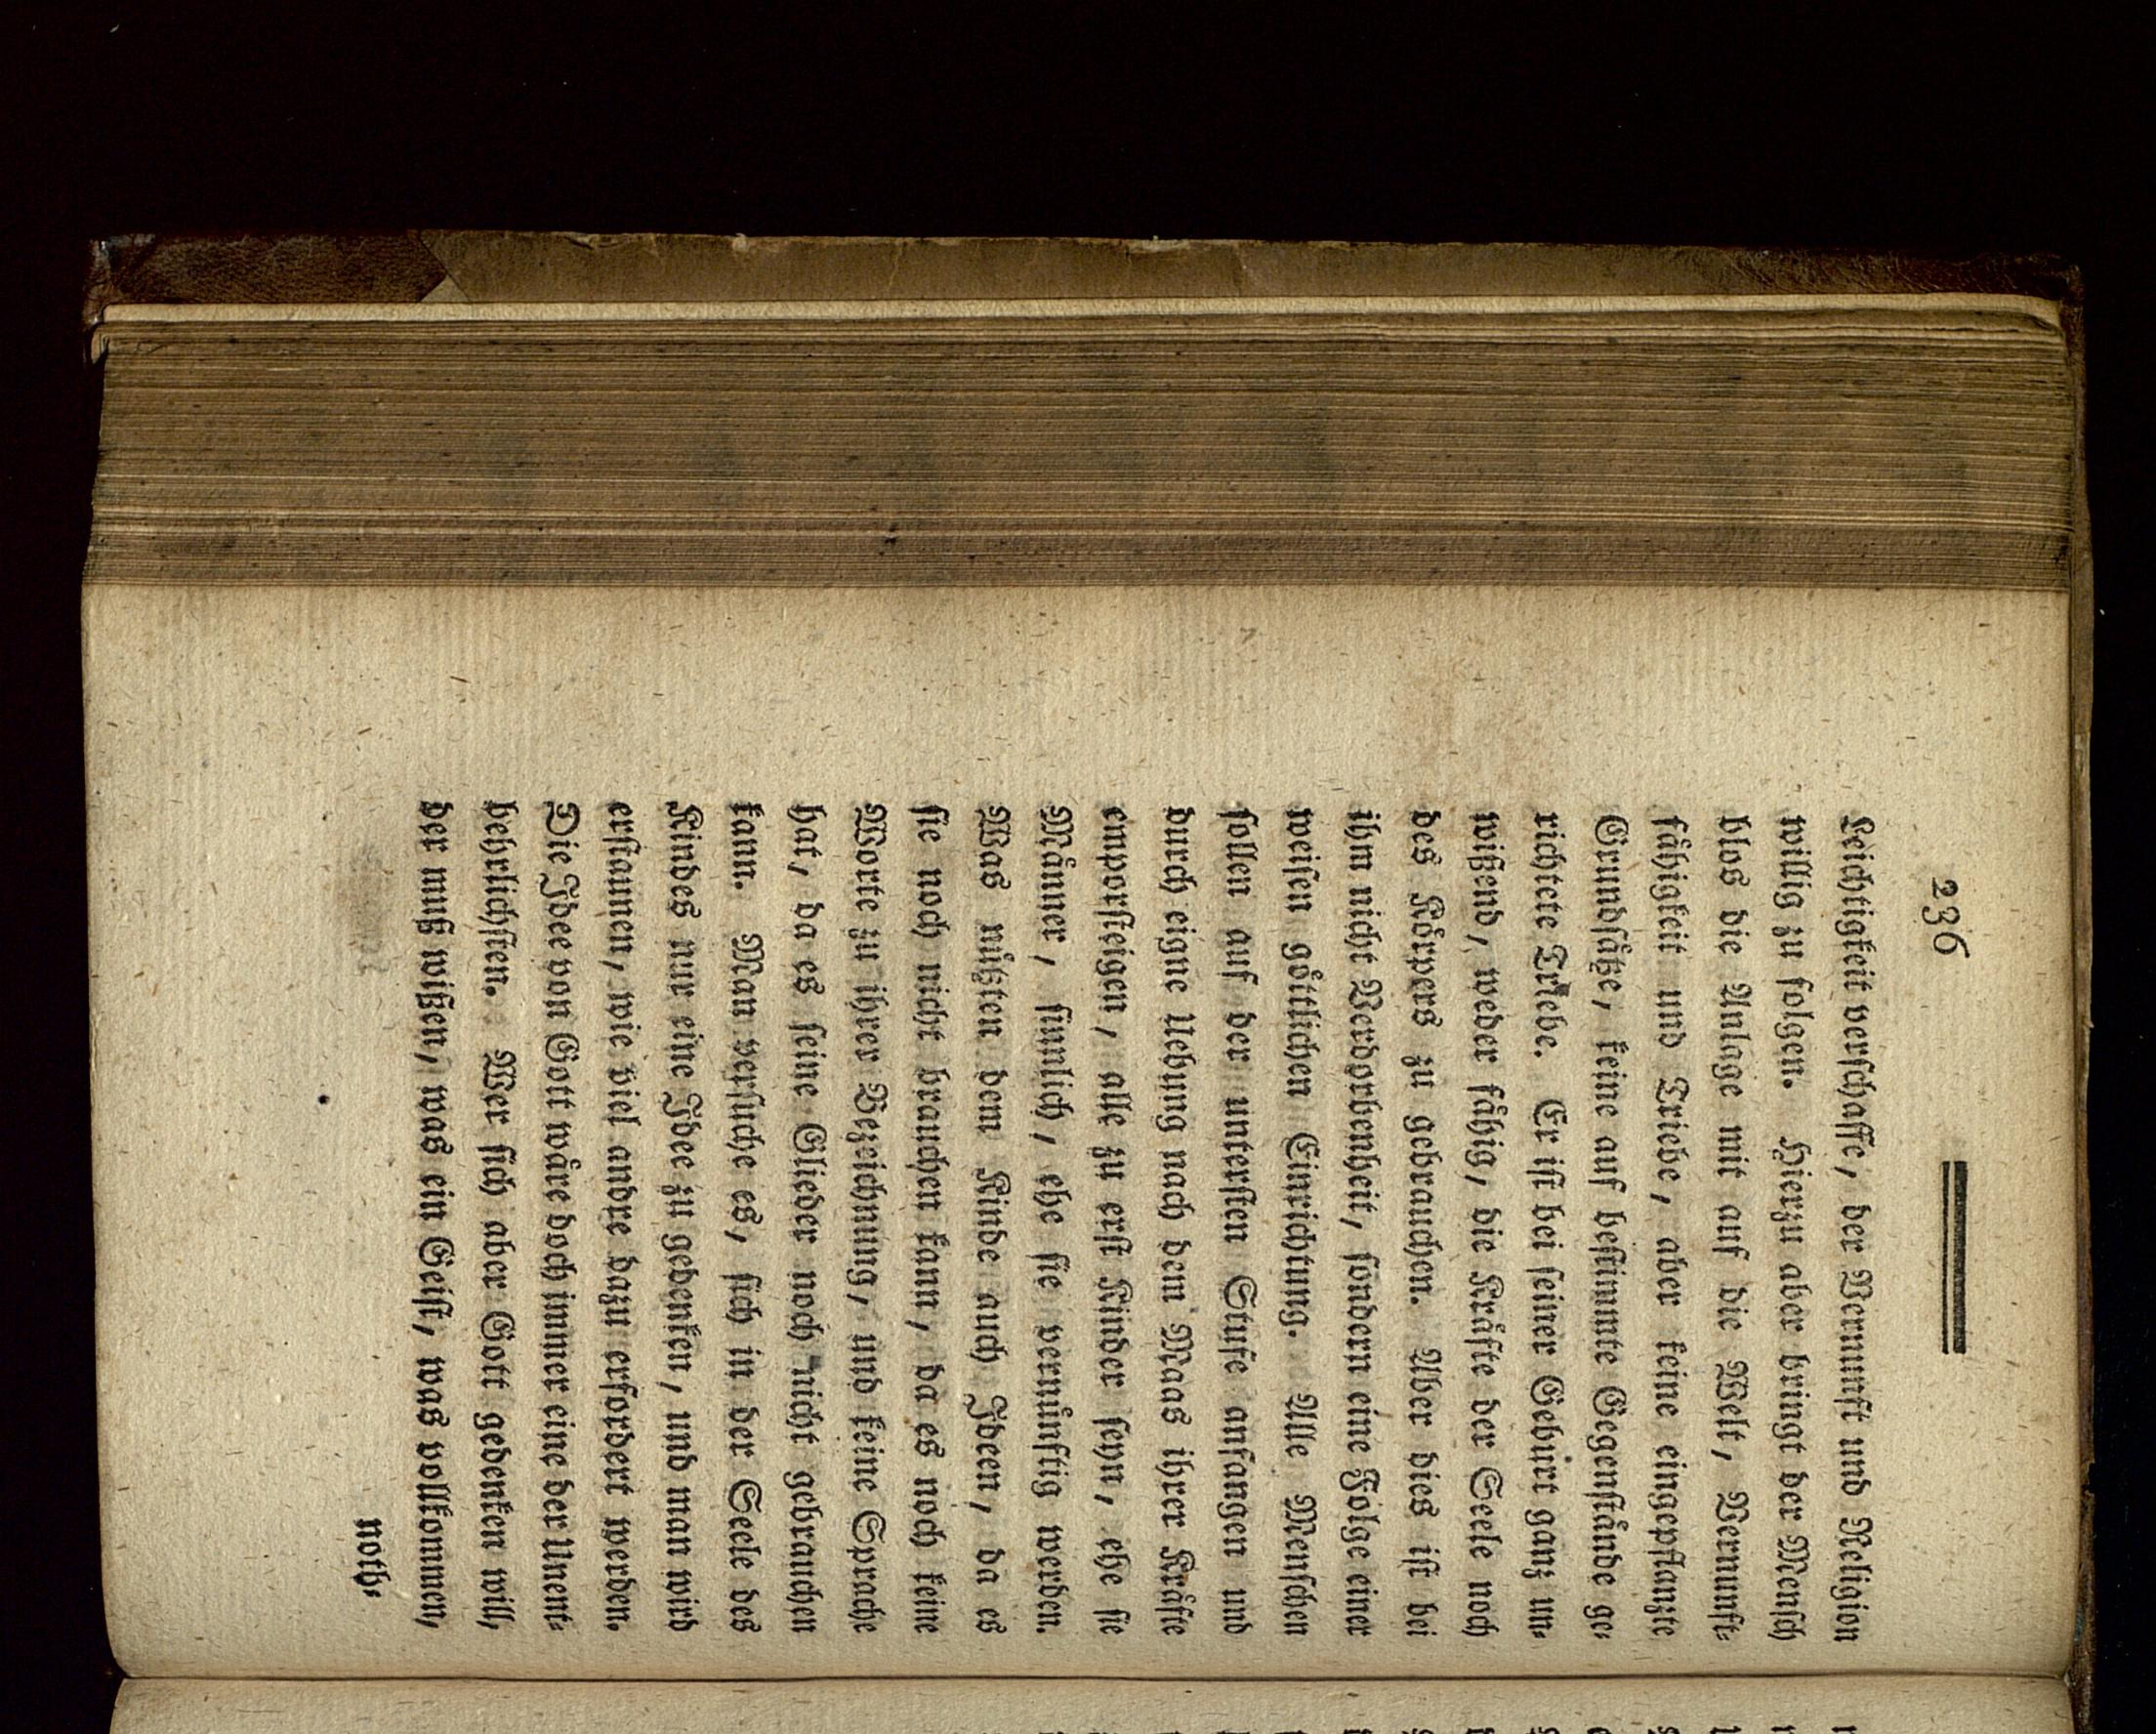 236
Leichtigkeit verschaffe, der Vernunft und Religion
willig zu folgen. Hierzu aber bringt der Mensch
blos die Anlage mit auf die Welt, Vernunft⸗
fähigkeit und Triebe, aber keine eingepflanzte
Grundsätze, keine auf bestimmte Gegenstände ge⸗
richtete Triebe. Er ist bei seiner Geburt ganz un⸗
wißend, weder fähig, die Kräfte der Seele noch
des Körpers zu gebrauchen. Aber dies ist bei
ihm nicht Verdorbenheit, sondern eine Folge einer
weisen göttlichen Einrichtung. Alle Menschen
sollen auf der untersten Stufe anfangen und
durch eigne Uebung nach dem Maas ihrer Kräfte
emporsteigen, alle zu erst Kinder seyn, ehe sie
Männer, sinnlich, ehe sie vernünftig werden.
Was nüßten dem Kinde auch Ideen, da es
sie noch nicht brauchen kann, da es noch keine
Worte zu ihrer Bezeichnung, und keine Sprache
hat, da es seine Glieder noch nicht gebrauchen
kann. Man versuche es, sich in der Seele des
Kindes nur eine Idee zu gedenken, und man wird
erstaunen, wie viel andre dazu erfordert werden.
Die Idee von Gott wäre doch immer eine der Unent⸗
behrlichsten. Wer sich aber Gott gedenken will,
der muß wißen, was ein Geist, was vollkommen,
noth⸗